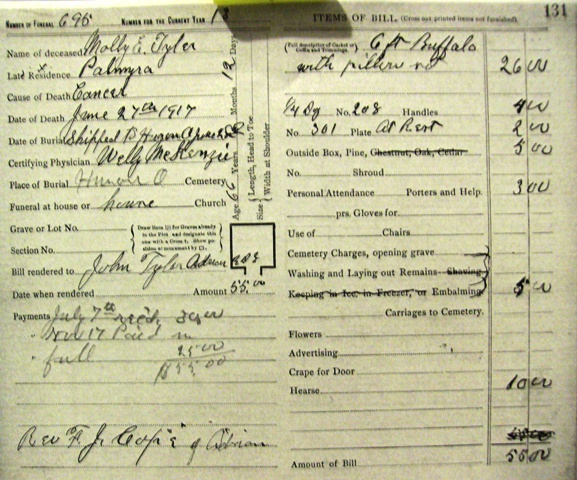 NUMBER OF FUNERAL 695 NUMBER FOR THE CURRENT YEAR 13
Name of deceased Molly E. Tyler
Late Residence Palmyra
Cause of Death Cancer
Date of Death June 27th 1917
Date of Burial Shipped to Huron
Certifying Physician Wells McKenzie
Place of Burial Huron O Cemetery
Funeral at house or home Church
Grave or Lot No.
Section No.
Draw lines for Graves already in the Plot and designate this one with a Cross †. Show position of monument by □.
Bill rendered to John Tyler Adrian
Date when rendered Amount 55.00
Payments July 7th 30.00
" Nov 17 Paid in
" full 25.00
$55.00
Rev F. J. Cope of Adrian
Age 66 Years, Months, 12 Days
Size Length, Head to Toe.
Width at Shoulder
131
ITEMS OF BILL. (Cross out printed items not furnished).
(Full description of Casket or Coffin and Trimmings.) 6 ft Buffalo
with pillow 26 00
No. 208 Handles 4 00
No 301 Plate At Rest 2 00
Outside Box, Pine, Chestnut, Oak, Cedar 5 00
No. Shroud
Personal Attendance Porters and Help. 3 00
prs. Gloves for
Use of Chairs
Cemetery Charges, opening grave
Washing and Laying out Remains Shaving
Keeping in Ice, in Freezer, or Embalming 5 00
Carriages to Cemetery.
Flowers
Advertising
Crape for Door
Hearse 10 00
Amount of Bill 55 00